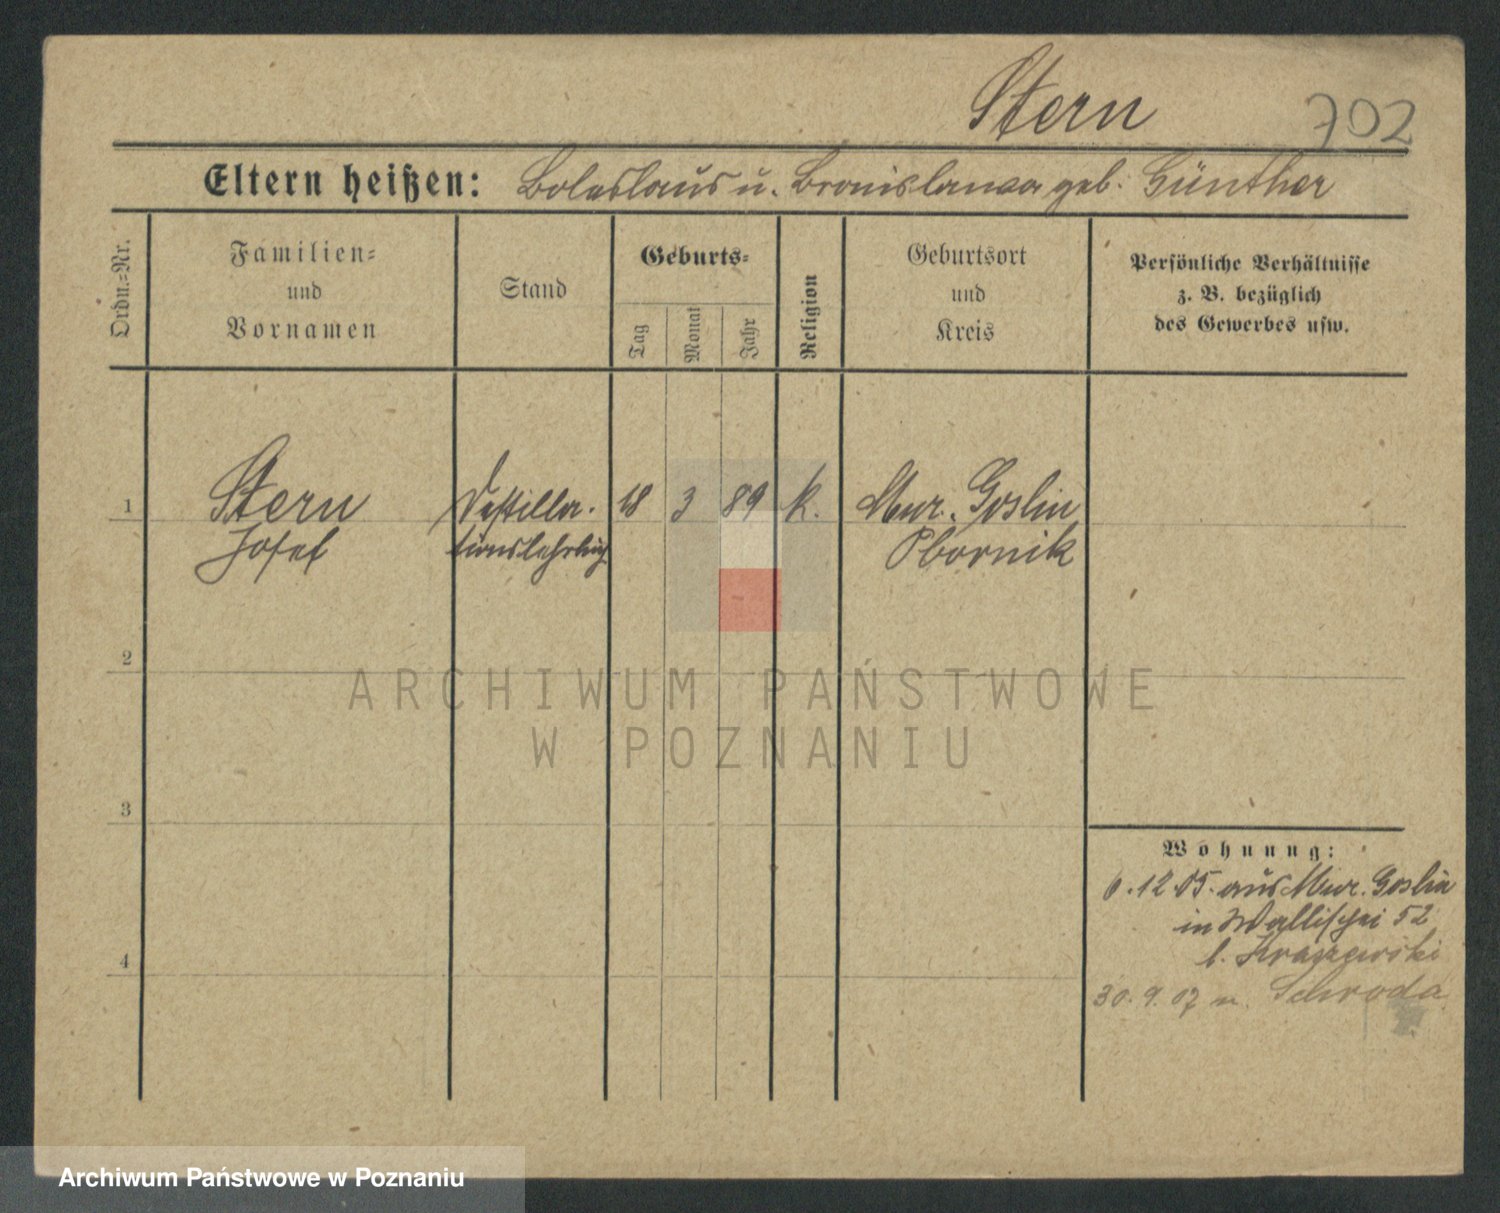 Stern 702
Eltern heißen: Boleslaus u. Bronislawa geb. Günther
Ordn.-Nr.
Familien-
und
Vornamen
Stand
Geburts-
Tag
Monat
Jahr
Religion
Geburtsort
und
Kreis
Persönliche Verhältnisse
z. B. bezüglich
des Gewerbes usw.
1 Stern Destilla- 18 3 89 k. Mur. Goslin
Josef tionslehrling Obornik
2
3
4
Wohnung:
6.12.05. aus Mur. Goslin
in Wallischei 52
b. Kraszewski
30.9.07 n. Schroda
ARCHIWUM PAŃSTWOWE
W POZNANIU
Archiwum Państwowe w Poznaniu